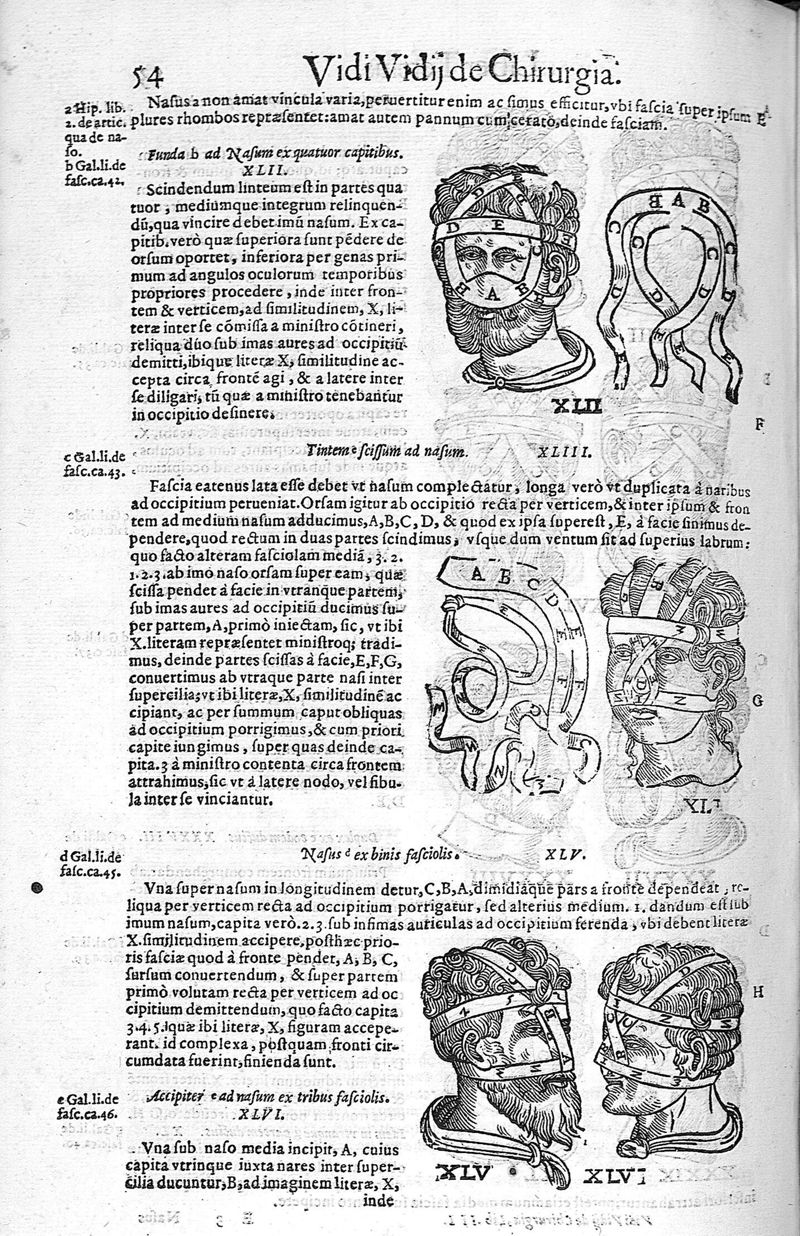 54 Vidi Vidij de Chirurgia.
a Hip. lib.
2. de artic.
qua de na-
so.
b Gal. li. de
fasc. ca. 42.
Nasus a non amat vincula varia, peruertitur enim ac simus efficitur, vbi fascia super ipsum E
plures rhombos repræsentet: amat autem pannum cum cerato, deinde fasciam.
Funda b ad Nasum ex quatuor capitibus.
XLII.
Scindendum linteum est in partes qua
tuor, mediumque integrum relinquen-
dū, qua vincire debet imū nasum. Ex ca-
pitib. verò quæ superiora sunt pēdere de
orsum oportet, inferiora per genas pri-
mum ad angulos oculorum temporibus
propriores procedere, inde inter fron-
tem & verticem, ad similitudinem, X, li-
teræ inter se cōmissa a ministro cōtineri,
reliqua duo sub imas aures ad occipitiū
demitti, ibique literæ X, similitudine ac-
cepta circa frontē agi, & a latere inter
se diligari, tū quæ a ministro tenebantur
in occipitio desinere.
D E C E
B A B E
B A B
C C C C
D D D D
E E E E
XLII
F
c Gal. li. de
fasc. ca. 43.
Tintem c scissum ad nasum. XLIII.
Fascia eatenus lata esse debet vt nasum complectatur, longa verò vt duplicata á naribus
ad occipitium perueniat. Orsam igitur ab occipitio recta per verticem, & inter ipsum & fron
tem ad medium nasum adducimus, A, B, C, D, & quod ex ipsa superest, E, à facie sinimus de-
pendere, quod rectum in duas partes scindimus, vsque dum ventum sit ad superius labrum:
quo facto alteram fasciolam mediā, 3. 2.
1. 2. 3. ab imo naso orsam super eam, quæ
scissa pendet à facie in vtranque partem,
sub imas aures ad occipitiū ducimus su-
per partem, A, primò iniectam, sic, vt ibi
X. literam repræsentet ministroq; tradi-
mus, deinde partes scissas à facie, E, F, G,
conuertimus ab vtraque parte nasi inter
supercilia; vt ibi literæ, X, similitudinē ac
cipiant, ac per summum caput obliquas
ad occipitium porrigimus, & cum priori
capite iungimus, super quas deinde ca-
pita. 3 à ministro contenta circa frontem
attrahimus, sic vt á latere nodo, vel fibu-
la inter se vinciantur.
A B C D
E E
F F
G
XL
d Gal. li. de
fasc. ca. 45.
Nasus d ex binis fasciolis. XLV.
Vna super nasum in longitudinem detur, C, B, A, dimidiaque pars a fronte dependeat, re-
liqua per verticem recta ad occipitium porrigatur, sed alterius medium. 1. dandum est sub
imum nasum, capita verò. 2. 3. sub infimas auriculas ad occipitium ferenda, vbi debent literæ
X. similitudinem accipere, posthæc prio-
ris fasciæ quod à fronte pendet, A, B, C,
sursum conuertendum, & super partem
primò volutam recta per verticem ad oc
cipitium demittendum, quo facto capita
3. 4. 5. quæ ibi literæ, X, figuram accepe-
rant. id complexa, postquam fronti cir-
cumdata fuerint, finienda sunt.
H
e Gal. li. de
fasc. ca. 46.
Accipiter e ad nasum ex tribus fasciolis.
XLVI.
Vna sub naso media incipit, A, cuius
capita vtrinque iuxta nares inter super-
cilia ducuntur, B, ad imaginem literæ, X,
inde
XLV XLVI